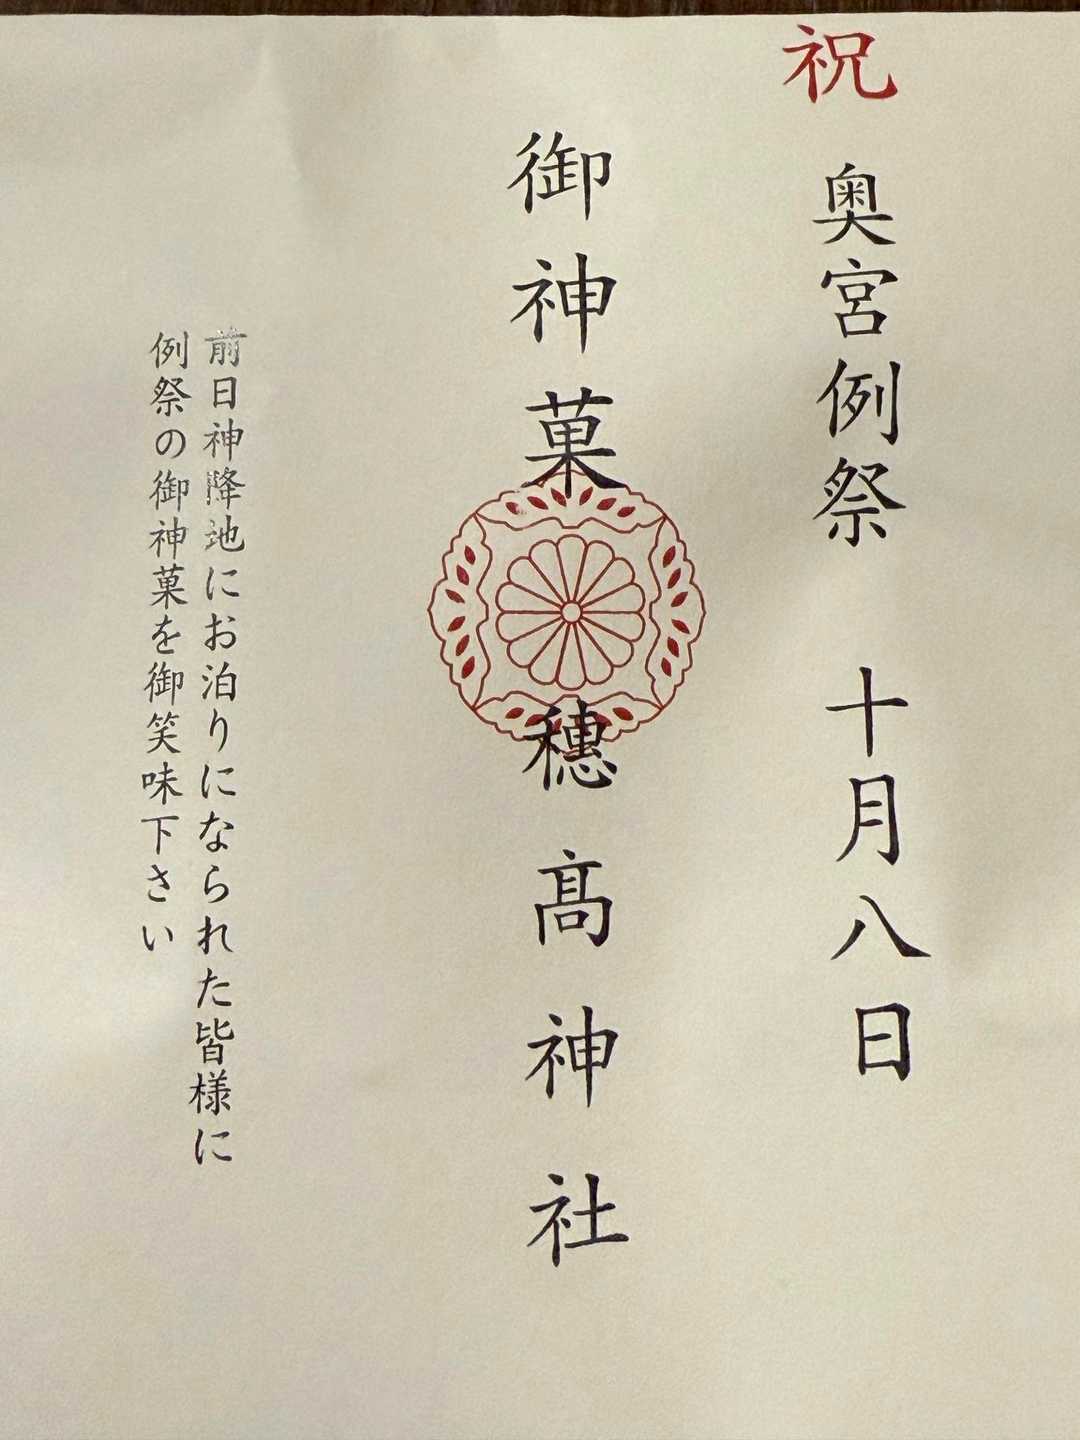 祝
奥宮例祭　十月八日
御神菓
穂髙神社
前日神降地にお泊りになられた皆様に
例祭の御神菓を御笑味下さい